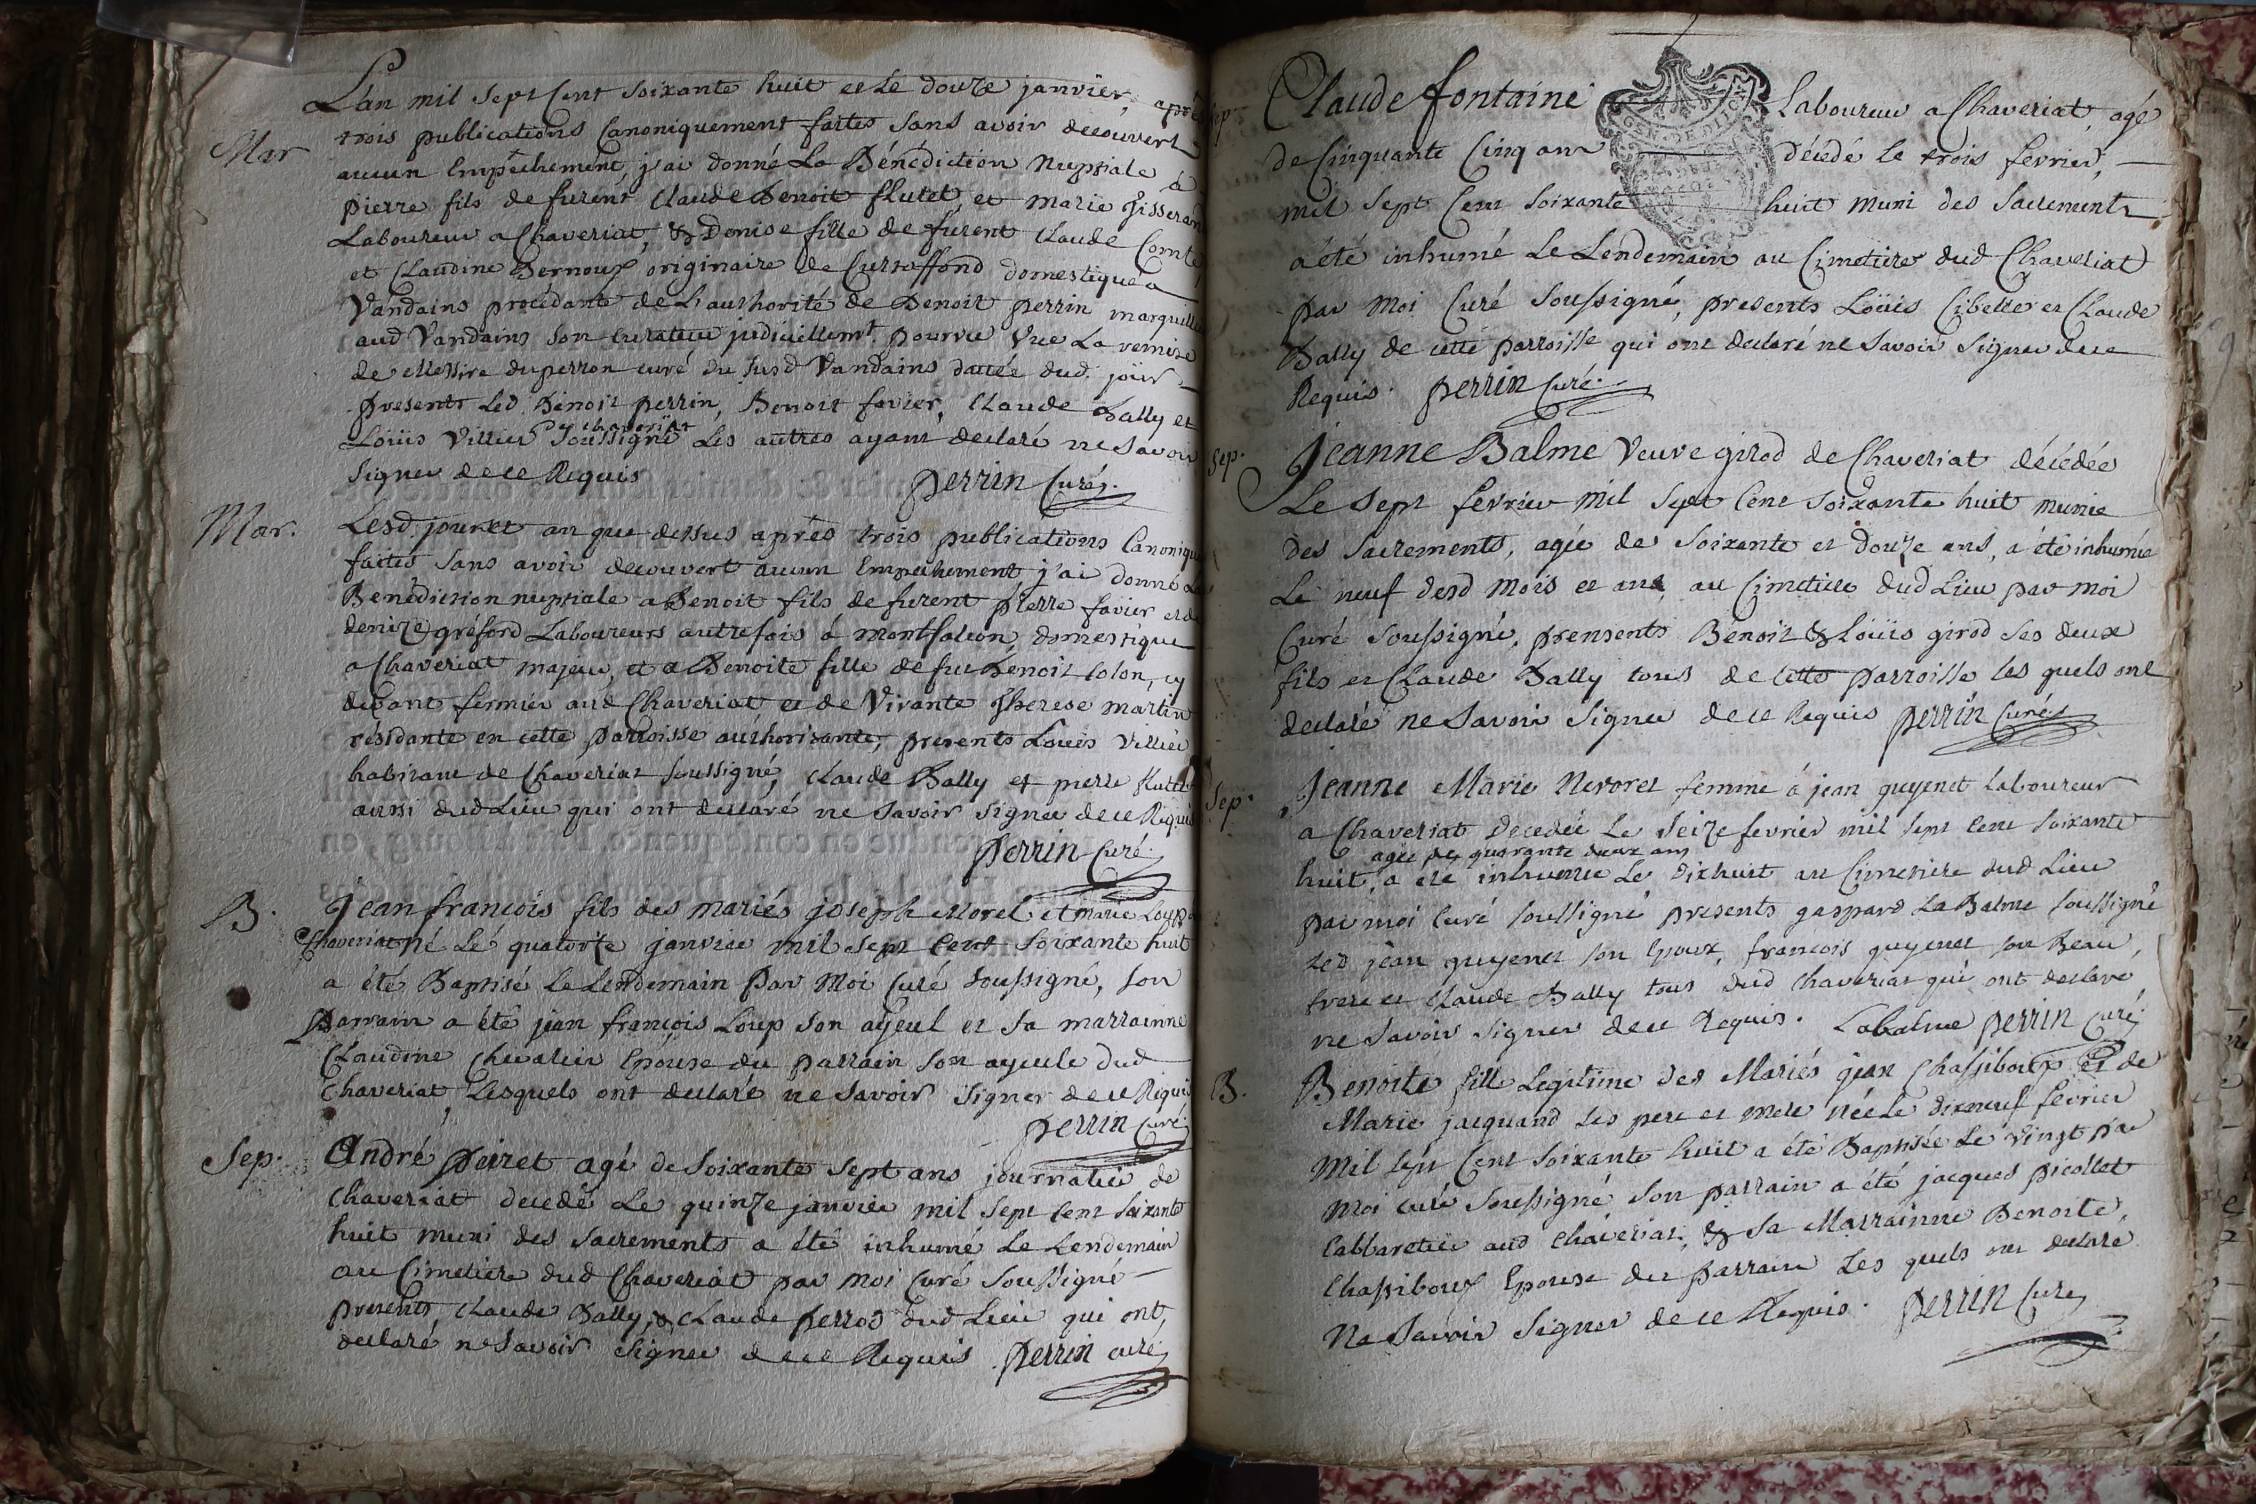 L'an mil sept Cent soixante huit et le douze janvier, après
Mar
trois publications Canoniquement faites sans avoir decouvert
aucun Empêchement, j'ai donné La Bénédiction Nuptiale à
pierre fils de furent Claude Benoit flutet et marie tisserand
Laboureur a Chaveriat, & Denise fille de furent Claude Comte
et Claudine Bernoux originaire de Curtaffond domestique a
Vandains procédante de L'authorité de Benoit perrin marguillier
aud Vandains son curateur judiciellemt. pourvu Vue La remise
de Messire duperron curé du susd Vandains dattée dud. jour
presents led. Benoit perrin, Benoit favier, Claude Bally et
Loüis Villier Soussigné Les autres ayant declaré ne Savoir
Signer de ce Requis
perrin Curé.
Mar.
Lesd. jour et an que dessus après trois publications Canoniques
faites sans avoir decouvert aucun Empechement j'ai donné La
Bénédiction nuptiale a Benoit fils de furent pierre favier et de
denize gréford Laboureurs autrefois à montfalcon, domestique
a Chaveriat majeur, et a Benoite fille de fut Benoit Colon, cy
devant fermier aud Chaveriat et de Vivante Therese martin
résidante en cette parroisse authorisante, presents Louis Villier
habitant de Chaveriat soussigné, Claude Bally et pierre flutet
aussi dud Lieu qui ont declaré ne Savoir signer de ce Requis
perrin Curé.
B.
Jean françois fils des mariés joseph Morel et marie Loup de
Chaveriat né Le quatorze janvier mil sept cent soixante huit
a été Baptisé Le Lendemain par Moi Curé soussigné, son
parrain a été jean françois Loup son ayeul et sa marrainne
Claudine Chevalier Epouse du parrain son ayeule dud
Chaveriat, Lesquels ont declaré ne Savoir signer de ce Requis
perrin Curé
Sep.
André peiret agé de Soixante sept ans journalier de
Chaveriat decedé Le quinze janvier mil sept cent soixante
huit muni des sacrements a été inhumé Le Lendemain
au Cimetiere dud Chaveriat par moi Curé soussigné
presents Claude Bally, & Claude perrod dud Lieu qui ont,
declaré ne Savoir signer de ce Requis perrin curé
Sep.
Claude fontaine Laboureur a Chaveriat, agé
de Cinquante Cinq ans décédé Le trois fevrier,
mil sept Cent Soixante huit muni des Sacrements
a été inhumé Le Lendemain au Cimetiere dud Chaveriat
par Moi Curé soussigné, presents Loüis Cibelle et Claude
Bally de cette parroisse qui ont declaré ne Savoir signer de ce
Requis. perrin Curé.
Sep.
Jeanne Balme Veuve girod de Chaveriat décédée
Le Sept fevrier mil sept Cent soixante huit munie
des sacrements, agée de soixante et douze ans, a été inhumée
Le neuf desd mois et an, au Cimetiere dud Lieu par moi
Curé soussigné, prensents Benoit & Loüis girod ses deux
fils et Claude Bally tous de cette parroisse les quels ont
declaré ne Savoir signer de ce Requis perrin Curé
Sep.
Jeanne Marie Nevoret femme à jean guyenet Laboureur
a Chaveriat decedée Le Seize fevrier mil sept cent soixante
agée de quarante deux ans
huit, a été inhumée Le dixhuit au Cimetiere dud Lieu
par moi Curé soussigné presents gaspard La Balme soussigné
led jean guyenet son Epoux, françois guyenet son Beau
frere et Claude Bally tous dud Chaveriat qui ont declaré
ne Savoir signer de ce Requis. Labalme perrin Curé
B.
Benoite fille Legitime des Mariés jean Chassiboux et de
Marie jacquand ses pere et mere née Le dixneuf fevrier
Mil sept Cent soixante huit a été Baptisée Le Vingt par
Moi curé soussigné son parrain a été jacques picollet
Cabbaretier aud Chaveriat, & sa Marrainne Benoite,
Chassiboux Epouse du parrain Les quels ont declaré
Ne Savoir signer de ce Requis. perrin Curé